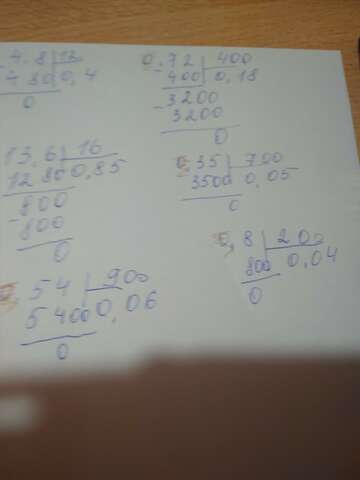 4,8 | 12
480 0,4
0
0,72 | 400
- 400 0,18
- 3200
3200
0
13,6 | 16
1280 0,85
- 800
800
0
0,35 | 700
3500 0,05
0
0,8 | 200
800 0,04
0
0,54 | 900
5400 0,06
0